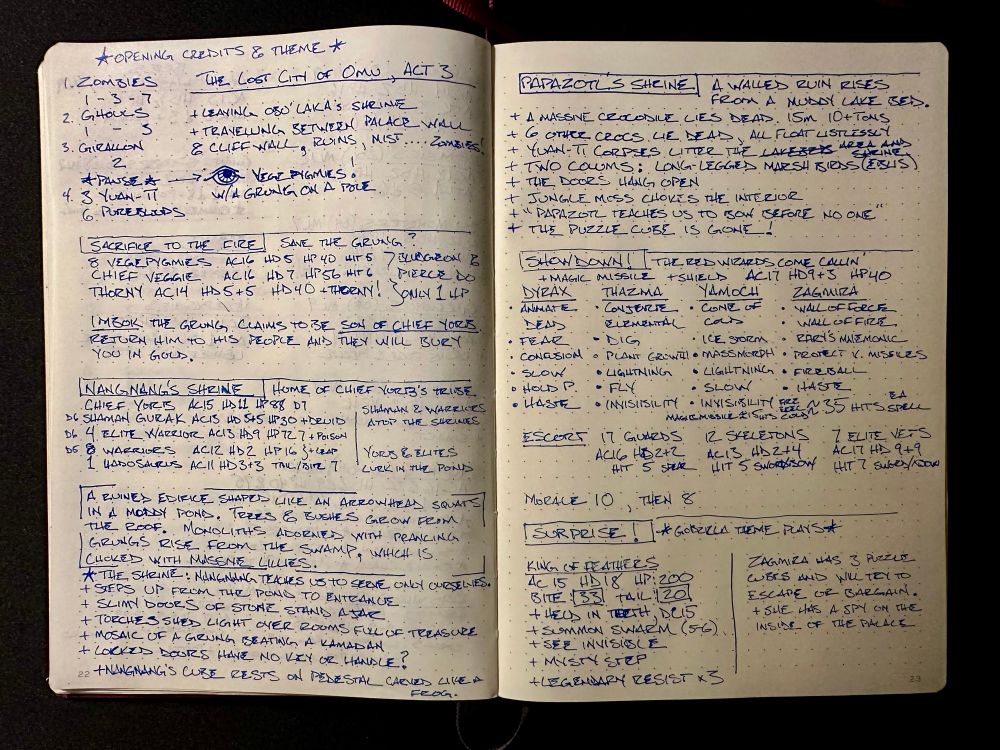 ★OPENING CREDITS & THEME★
THE LOST CITY OF OMU, ACT 3
1. ZOMBIES
1 - 3 - 7
2. GHOULS
1 - 3
3. GIRALLON
2
★PAUSE★ →
4. 3 YUAN-TI
6 PUREBLOODS
+ LEAVING OBO'LAKA'S SHRINE
+ TRAVELLING BETWEEN PALACE WALL
& CLIFF WALL, RUINS, MIST.... ZOMBIES!
VEGEPYGMIES!
W/A GRUNG ON A POLE
SACRIFICE TO THE FIRE SAVE THE GRUNG?
8 VEGEPYGMIES AC16 HD5 HP40 HIT5 BLUDGEON &
CHIEF VEGGIE AC16 HD7 HP56 HIT6 PIERCE DO
THORNY AC14 HD5+5 HD40 +THORNY! ONLY 1 HP
IMBOK THE GRUNG, CLAIMS TO BE SON OF CHIEF YORB.
RETURN HIM TO HIS PEOPLE AND THEY WILL BURY
YOU IN GOLD.
NANGNANG'S SHRINE HOME OF CHIEF YORB'S TRIBE
CHIEF YORB AC15 HD11 HP88 D7
D6 SHAMAN GURAK AC13 HD5+5 HP30 +DRUID
D6 4 ELITE WARRIOR AC13 HD9 HP72 7+POISON
D5 8 WARRIORS AC12 HD2 HP16 +LEAP
1 HADOSAURUS AC11 HD3+3 TAIL/BITE 7
SHAMAN & WARRIORS
ATOP THE SHRINES
YORB & ELITES
LURK IN THE POND
A RUINED EDIFICE SHAPED LIKE AN ARROWHEAD SQUATS
IN A MUDDY POND. TREES & BUSHES GROW FROM
THE ROOF. MONOLITHS ADORNED WITH PRANCING
GRUNGS RISE FROM THE SWAMP, WHICH IS
CHOKED WITH MASSIVE LILLIES.
★THE SHRINE: NANGNANG TEACHES US TO SERVE ONLY OURSELVES.
+ STEPS UP FROM THE POND TO ENTRANCE
+ SLIMY DOORS OF STONE STAND AJAR
+ TORCHES SHED LIGHT OVER ROOMS FULL OF TREASURE
+ MOSAIC OF A GRUNG BEATING A KAMADAN
+ LOCKED DOORS HAVE NO KEY OR HANDLE?
+NANGNANG'S CUBE RESTS ON PEDESTAL CARVED LIKE A
FROG.
22
PAPAZOTL'S SHRINE A WALLED RUIN RISES
FROM A MUDDY LAKE BED.
+ A MASSIVE CROCODILE LIES DEAD. 15M 10+TONS
+ 6 OTHER CROCS LIE DEAD, ALL FLOAT LISTLESSLY
+ YUAN-TI CORPSES LITTER THE LAKEBED AREA AND
SHRINE
+ TWO COLUMS: LONG-LEGGED MARSH BIRDS (EBLIS)
+ THE DOORS HANG OPEN
+ JUNGLE MOSS CHOKES THE INTERIOR
+ "PAPAZOTL TEACHES US TO BOW BEFORE NO ONE"
+ THE PUZZLE CUBE IS GONE!
SHOWDOWN! THE RED WIZARDS COME CALLIN'
+MAGIC MISSILE +SHIELD AC17 HD9+3 HP40
DYRAX THAZMA YAMOCH ZAGMIRA
• ANIMATE • CONJURE • CONE OF • WALL OF FORCE
DEAD ELEMENTAL COLD • WALL OF FIRE
• FEAR • DIG • ICE STORM • RARY'S MNEMONIC
• CONFUSION • PLANT GROWTH • MASSMORPH • PROTECT V. MISSILES
• SLOW • LIGHTNING • LIGHTNING • FIREBALL
• HOLD P. • FLY • SLOW • HASTE
• HASTE • INVISIBILITY • INVISIBILITY FIRE ~35 HITS EA
SPELL
ESCORT 17 GUARDS 12 SKELETONS 7 ELITE VETS
AC16 HD2+2 AC13 HD2+4 AC17 HD9+9
HIT 5 SPEAR HIT 5 SWORD/BOW HIT 7 SWORD/BOW
MORALE 10, THEN 8
SURPRISE! ★GODZILLA THEME PLAYS★
KING OF FEATHERS
AC 15 HD 18 HP:200
BITE: 33 TAIL: 20
+ HELD IN TEETH, DC15
+ SUMMON SWARM (5-6)
+ SEE INVISIBLE
+ MYSTY STEP
+LEGENDARY RESIST x3
ZAGMIRA HAS 3 PUZZLE
CUBES AND WILL TRY TO
ESCAPE OR BARGAIN.
+ SHE HAS A SPY ON THE
INSIDE OF THE PALACE
23